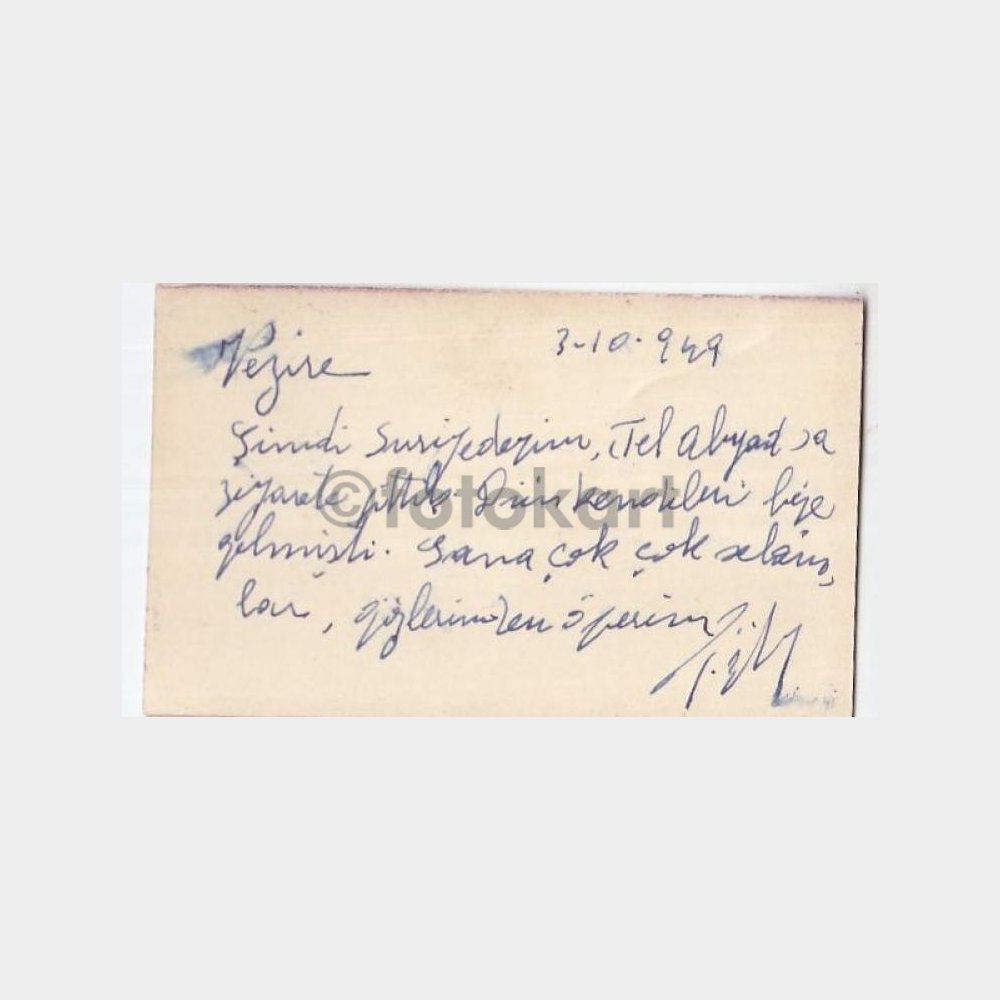 Vezire
3-10-949
Şimdi Suriyedeyim, Tel abyad a
ziyarete gittik. Dün kendileri bize
gelmişti. Sana çok çok selâm,
lar, gözlerinden öperim
©fotokart